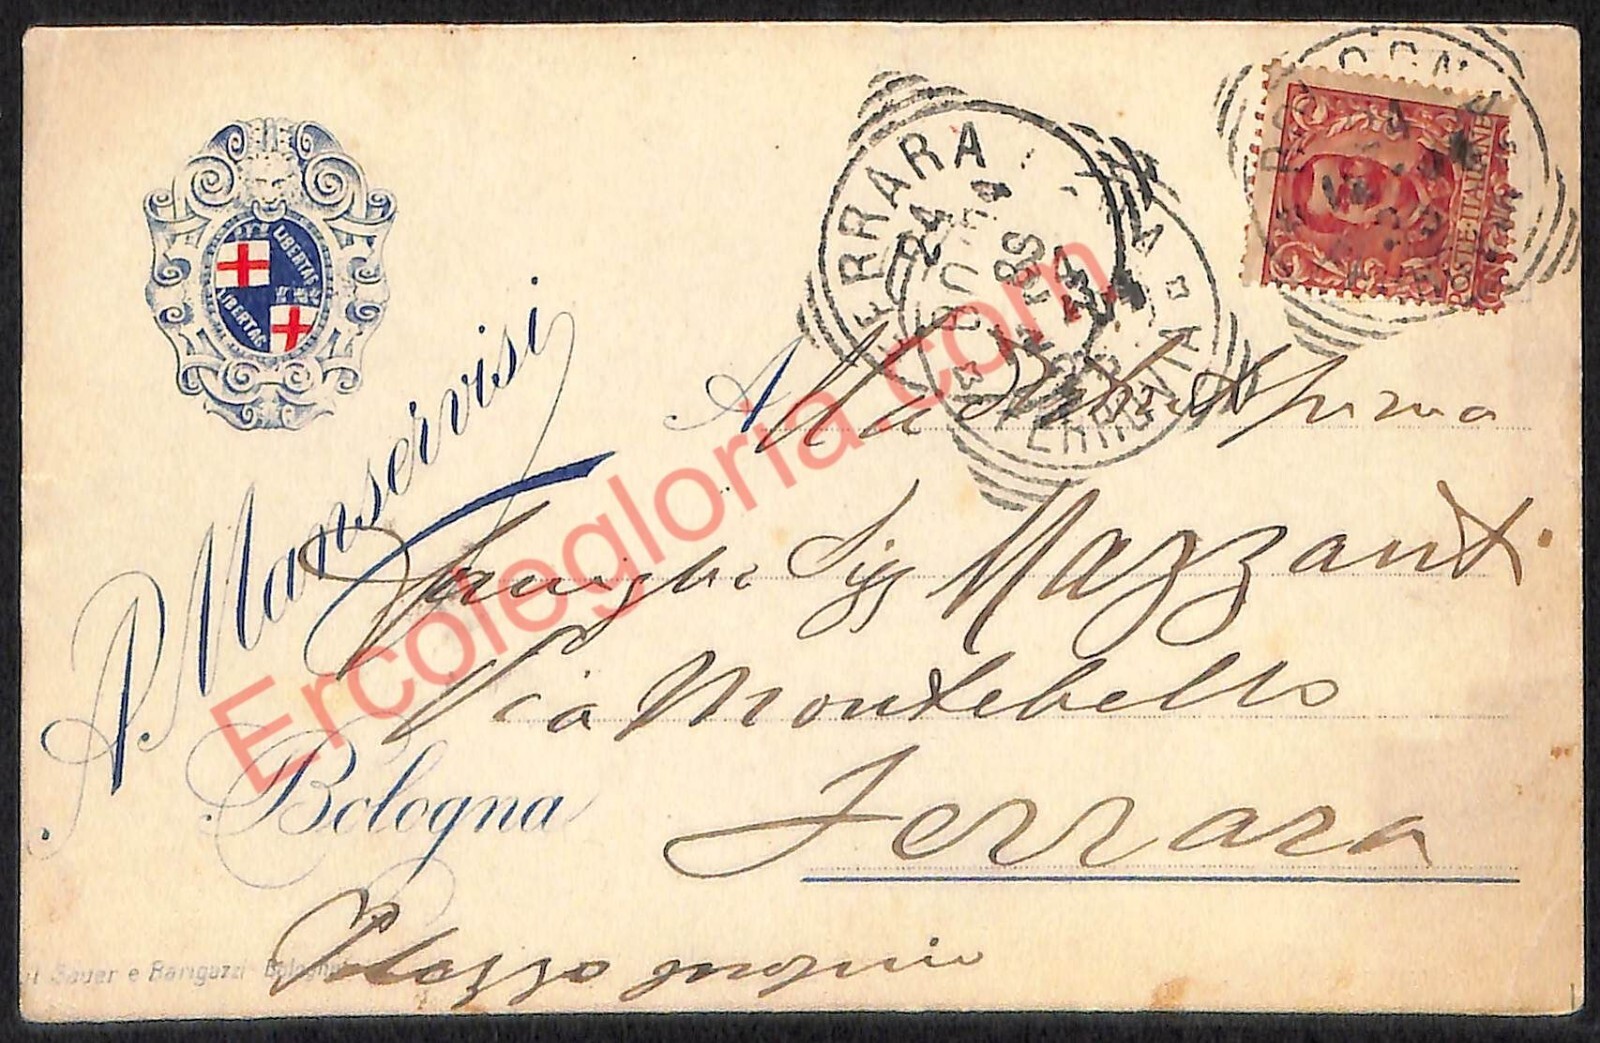 LIBERTAS
LIBERTAS
A. Manservisi
Bologna
FERRARA
FERROVIA
POSTE ITALIANE
Alla
Famiglia Sigg Mazzanti
Via Montebello
Ferrara
Palazzo proprio
Sauer e Barigazzi Bologna
Ercolegloria.com